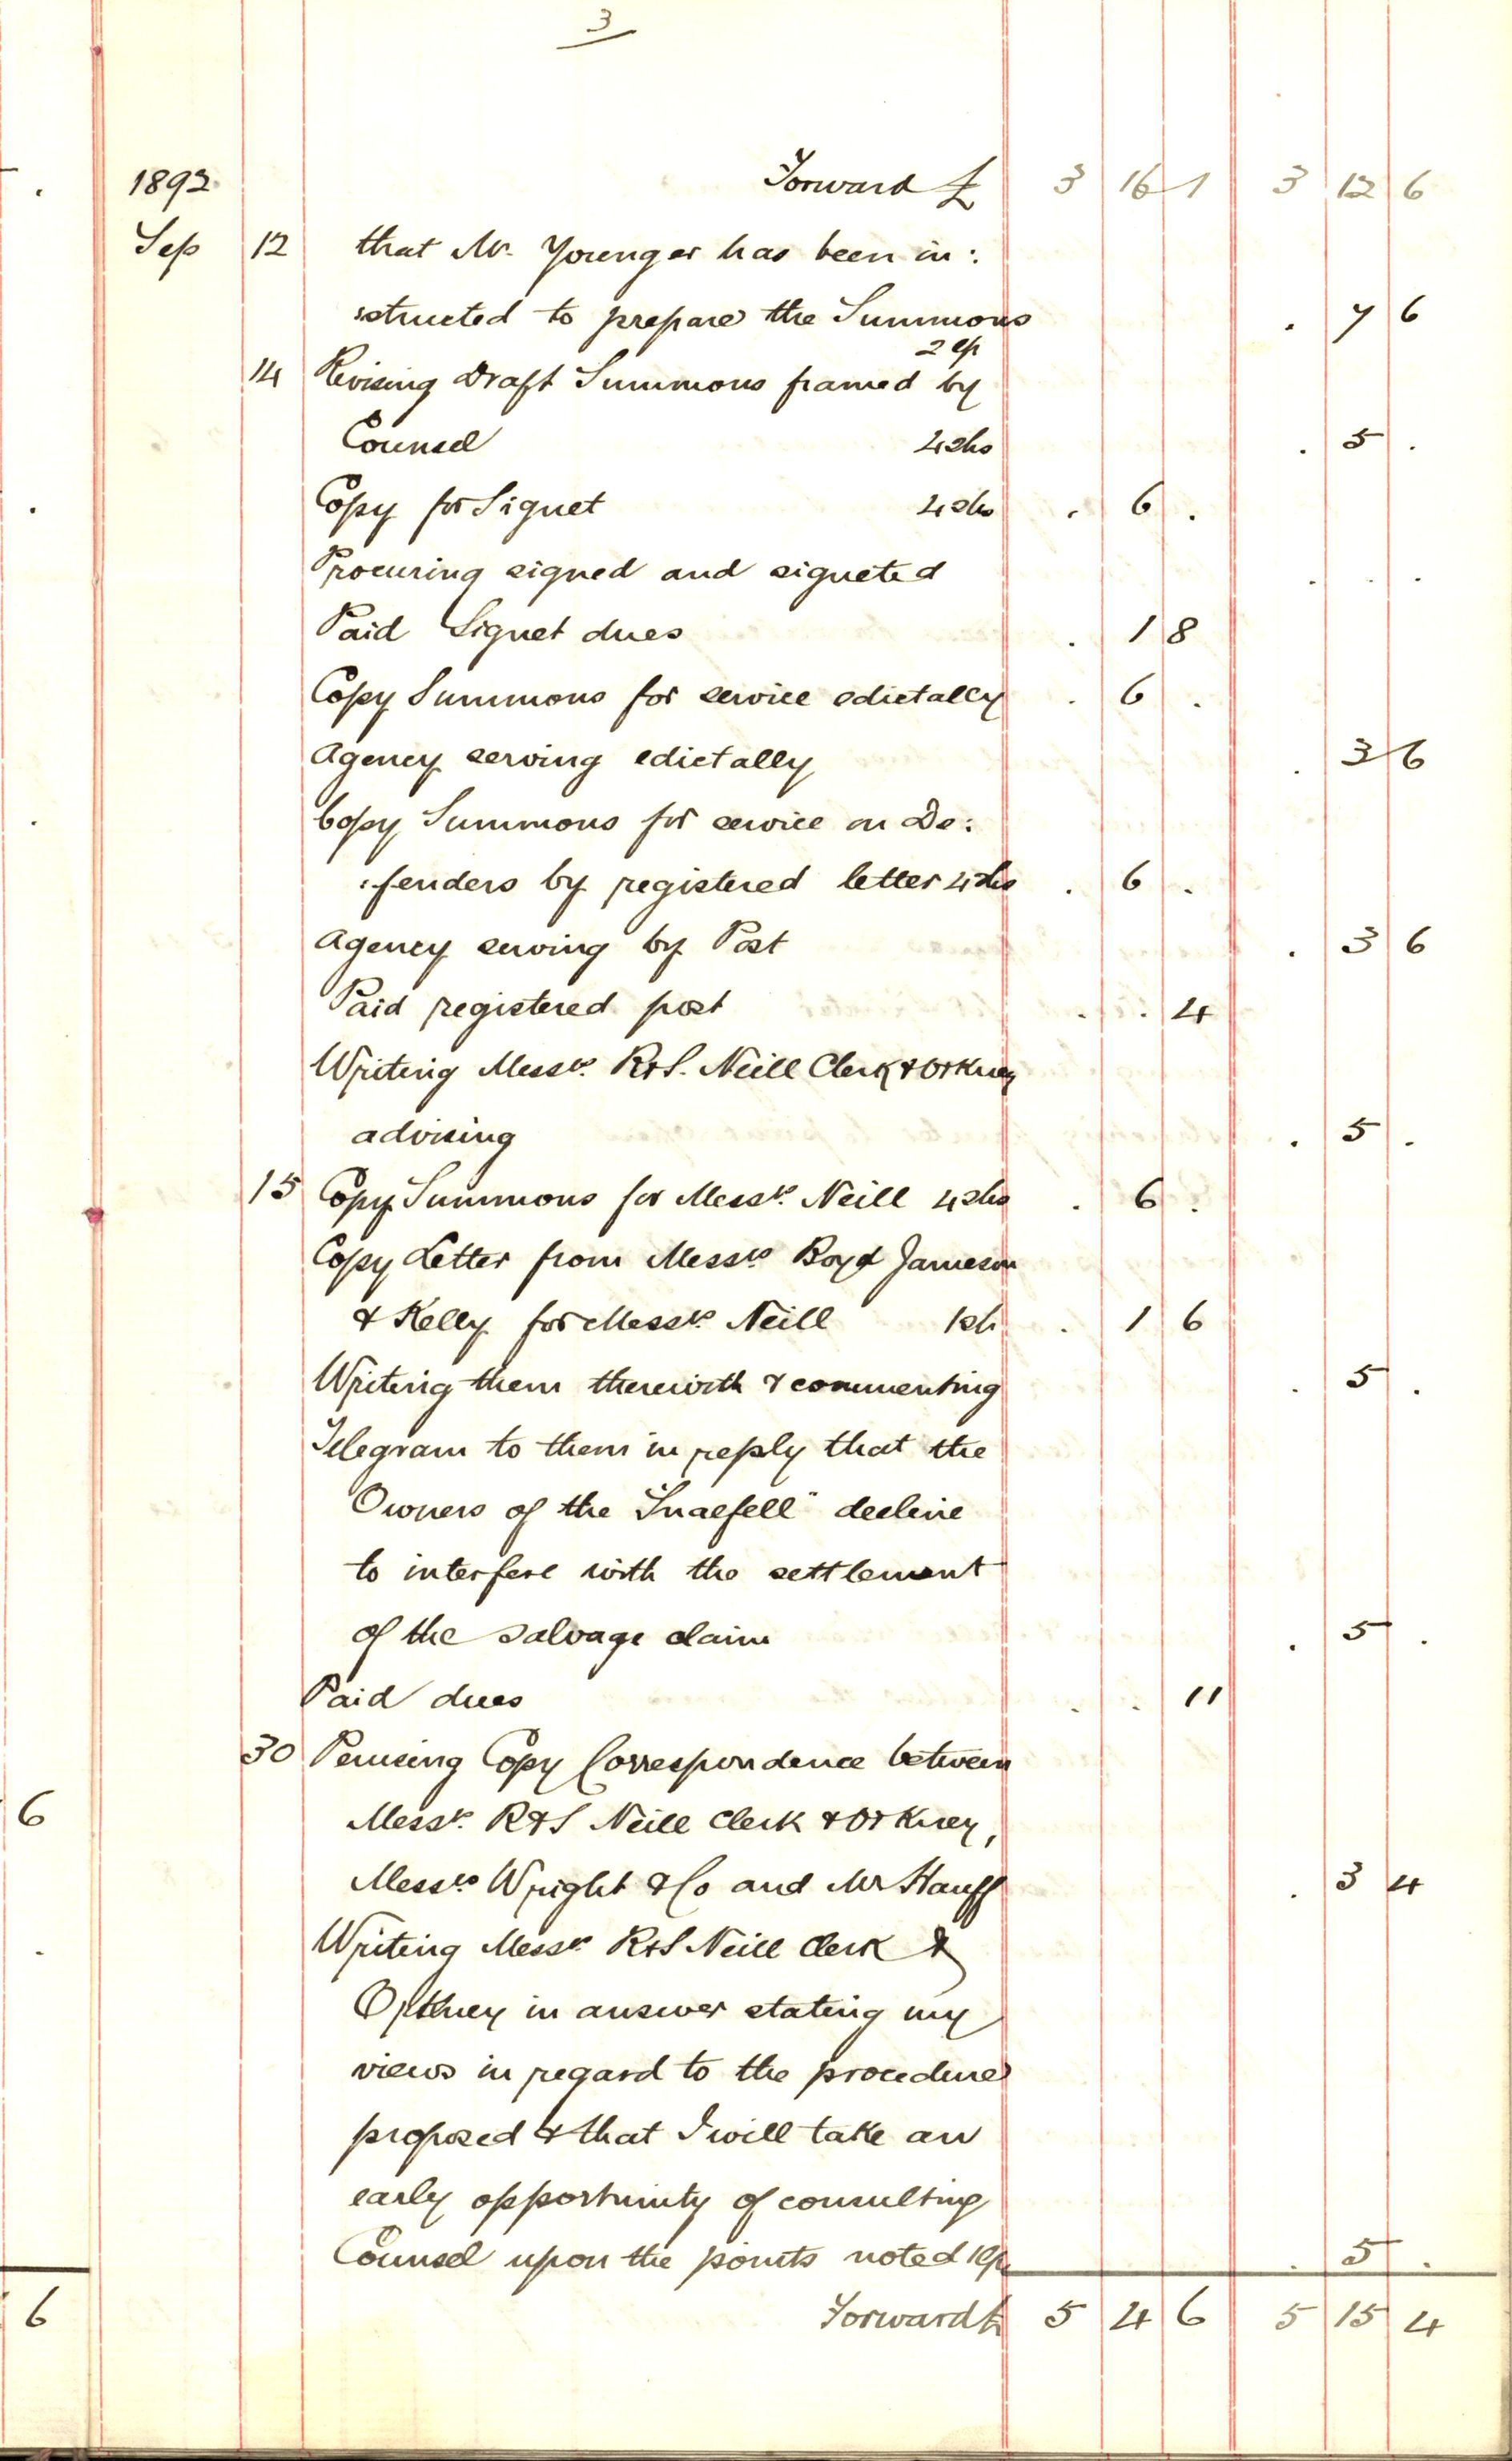 3
1892 Forward £ 3 16 1 3 12 6
Sep 12 that Mr. Younger has been in:
:structed to prepare the Summons . 7 6
2 cp
14 Revising Draft Summons framed by
Counsel 4 shs . 5 .
Copy for Signet 4 shs . 6 .
Procuring signed and signeted . . .
Paid Signet dues . 1 8
Copy Summons for service edictally . 6 .
Agency serving edictally . 3 6
Copy Summons for service on De:
:fenders by registered letter 4 shs . 6 .
Agency serving by Post . 3 6
Paid registered post . . 4
Writing Messrs. R & S. Neill Clerk & Orkney
advising . 5 .
15 Copy Summons for Messrs. Neill 4 shs . 6 .
Copy Letter from Messrs Boyd Jameson
& Kelly for Messrs. Neill 1 sh . 1 6
Writing them therewith & commenting . 5 .
Telegram to them in reply that the
Owners of the "Snaefell" decline
to interfere with the settlement
of the salvage claim . 5 .
Paid dues . . 11
30 Perusing Copy Correspondence between
Messrs. R & S Neill Clerk & Orkney,
Messrs Wright & Co and Mr Hauff . 3 4
Writing Messrs R & S Neill Clerk &
Orkney in answer stating my
views in regard to the procedure
proposed & that I will take an
early opportunity of consulting
Counsel upon the points noted 1 cp . 5 .
Forward £ 5 4 6 5 15 4
6
6